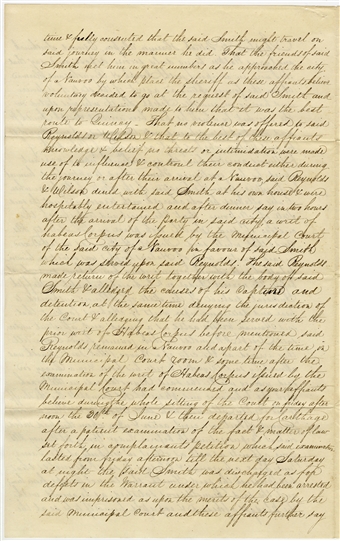 time & fully consented that the said Smith might travel on
said journey in the manner he did. That the friends of said
Smith met him in great numbers as he approached the city
of Nauvoo by whom place the sheriff as these affiants believe
voluntary decided to go at the request of said Smith and
upon representations made to him that it was the best
route to Quincy — That no violence was offered to said
Reynolds or Wilson & that to the best of these affiants
knowledge & belief no threats or intimidation were made
use of to influence & controul their conduct either during
the journey or after their arrival at Nauvoo, said Reynolds
& Wilson dined with said Smith at his own house & were
hospitably entertained and after dinner say in two hours
after the arrival of the party in said city a writ of
habeas corpus was issued by the Municipal Court
of the said city of Nauvoo in favour of said Smith
which was served upon said Reynolds, The said Reynolds
made return of the writ together with the body of said
Smith & alledged the causes of his capture and
detention at the same time denying the jurisdiction of
the Court & alledging that he had been served with the
prior writ of Habeas Corpus before mentioned said
Reynolds remained in Nauvoo and a part of the time in
the Municipal Court Room & some time after the
examination of the writ of Habeas Corpus issued by the
Municipal Court had commenced and as your affiants
believe during the whole sitting of the Court on fryday after
noon the 30th of June & then departed for Carthage
after a patient examination of the fact & matter of law
set forth in complainants petition which said examination
lasted from fryday afternoon till the next day Saturday
at night the said Smith was discharged as for
defects in the Warrant under which he had been arrested
and was imprisoned as upon the merits of the case by the
said Municipal Court and these affiants further say